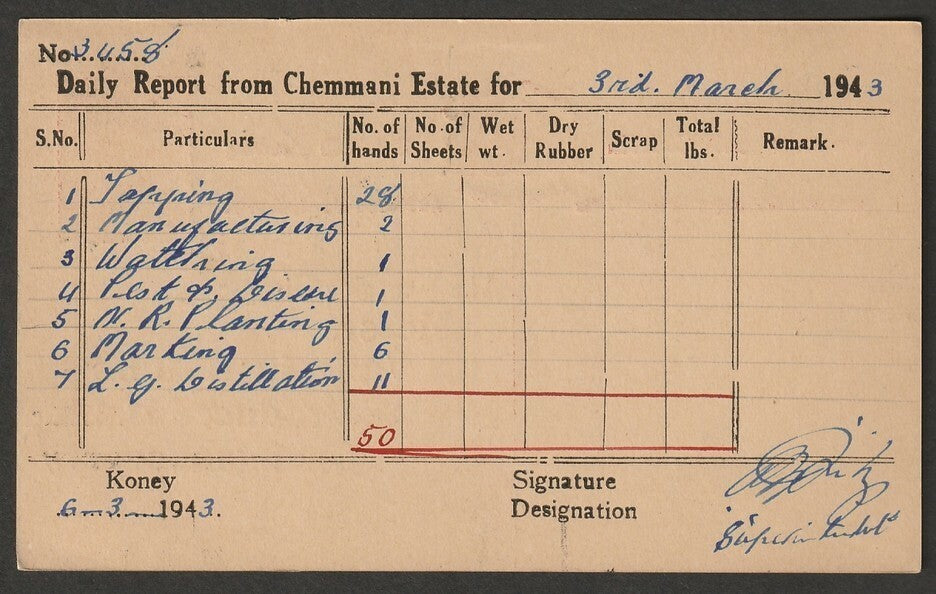 No. 3458
Daily Report from Chemmani Estate for 3rd. March 1943
S.No. Particulars No. of hands No. of Sheets Wet wt. Dry Rubber Scrap Total lbs. Remark.
1 Tapping 28
2 Manufacturing 2
3 Watching 1
4 Pest & Disease 1
5 N. R. Planting 1
6 Marking 6
7 L. G. Distillation 11
50
Koney Signature
6-3-1943. Designation
Superintendent